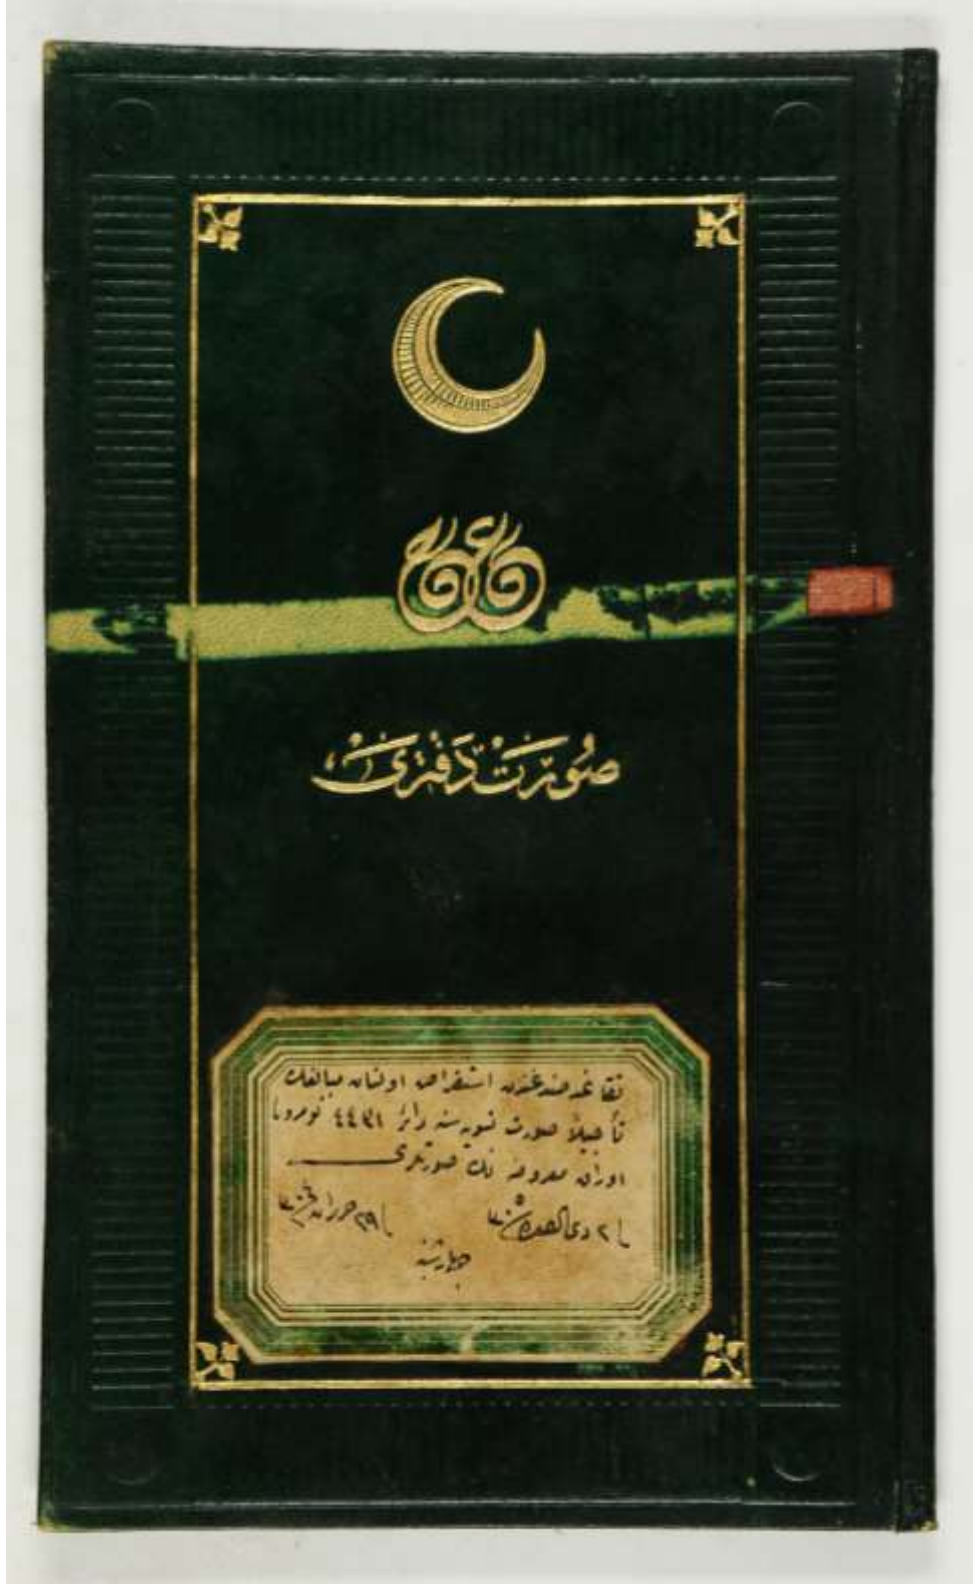 صُورَتْ دَفْتَرِی
تقاعد صندیغندن استقراض اولنان مبالغك
تأجیلاً صورت تسویه‌سنه دائر ٤٤٣١ نومرولی
اوراق معروضه نك صورتلری
٢ ذی القعده ٣٠٥
٢٩ حزیران ٣٠٤
چهارشنبه